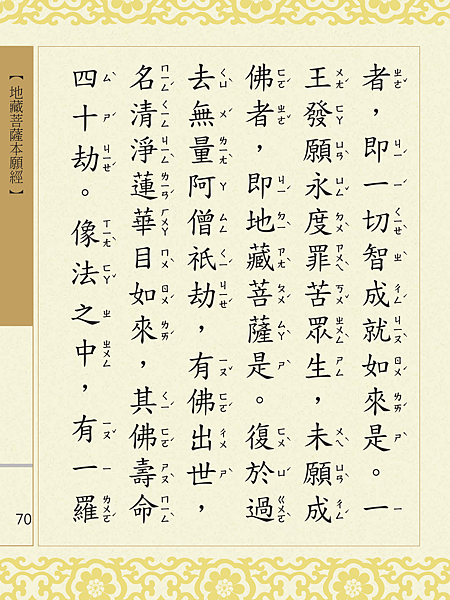 者，即一切智成就如來是。一
王發願永度罪苦眾生，未願成
佛者，即地藏菩薩是。復於過
去無量阿僧祇劫，有佛出世，
名清淨蓮華目如來，其佛壽命
四十劫。像法之中，有一羅
【地藏菩薩本願經】
70